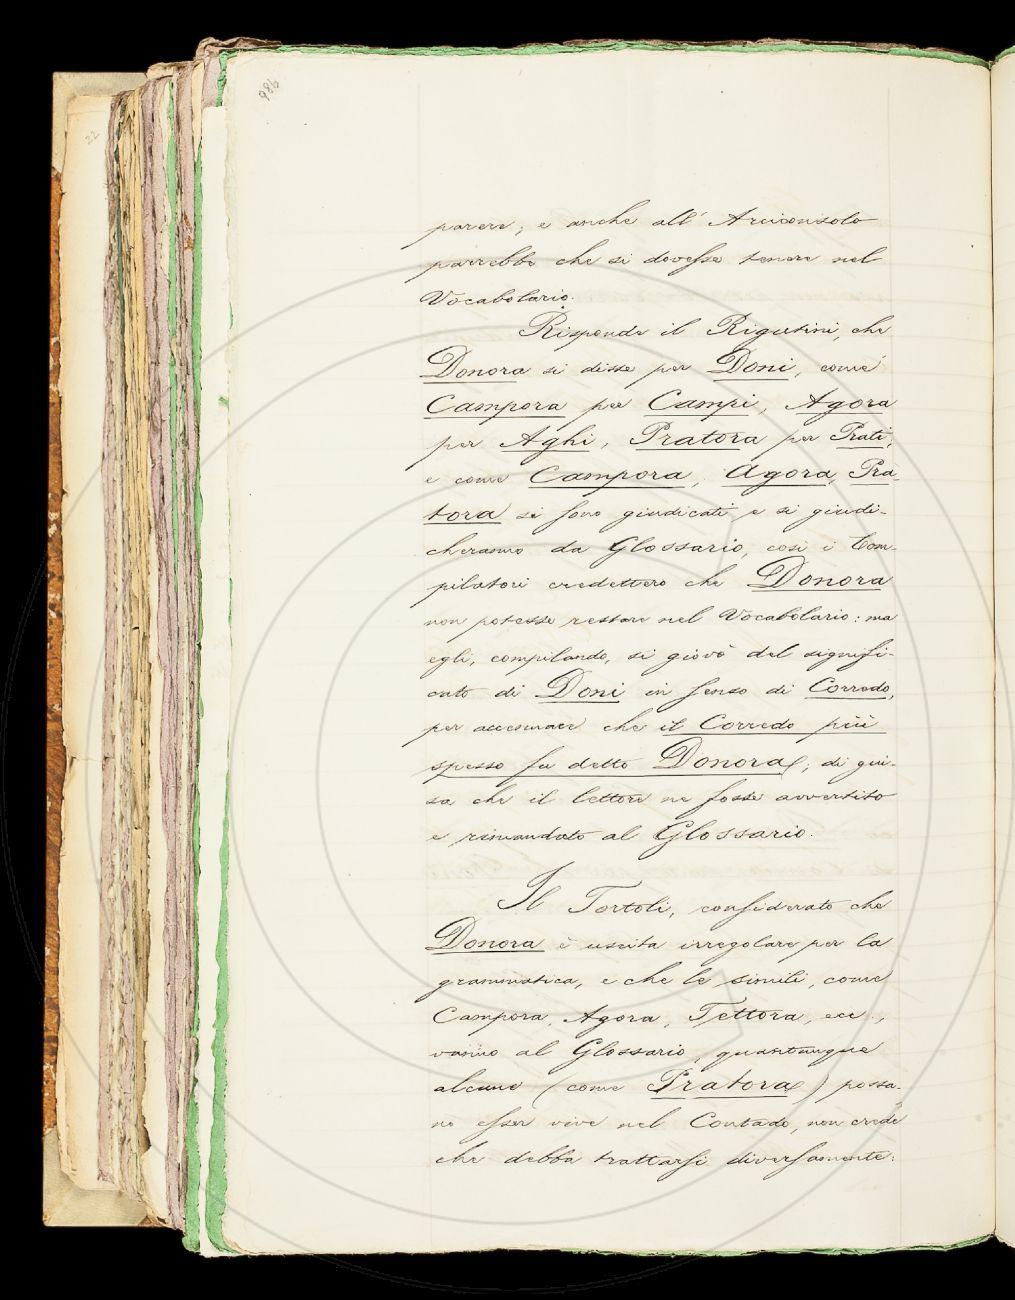 986
22
parere; e anche all' Arciconsolo
parrebbe che si dovesse tenere nel
Vocabolario.
Risponde il Rigutini, che
Donora si disse per Doni, come
Campora per Campi, Agora
per Aghi, Pratora per Prati;
e come Campora, Agora, Pra-
tora si sono giudicati e si giudi-
cheranno da Glossario, così i Com-
pilatori credettero che Donora
non potesse restare nel Vocabolario: ma
egli, compilando, si giovò del signifi-
cato di Doni in senso di Corredo,
per accennare che il Corredo più
spesso fu detto Donora; di gui-
sa che il lettore ne fosse avvertito
e rimandato al Glossario.
Il Tortoli, considerato che
Donora è uscita irregolare per la
grammatica, e che le simili, come
Campora, Agora, Tettora, ecc.,
vanno al Glossario, quantunque
alcune (come Pratora) possa-
no esser vive nel Contado, non crede
che debba trattarsi diversamente: